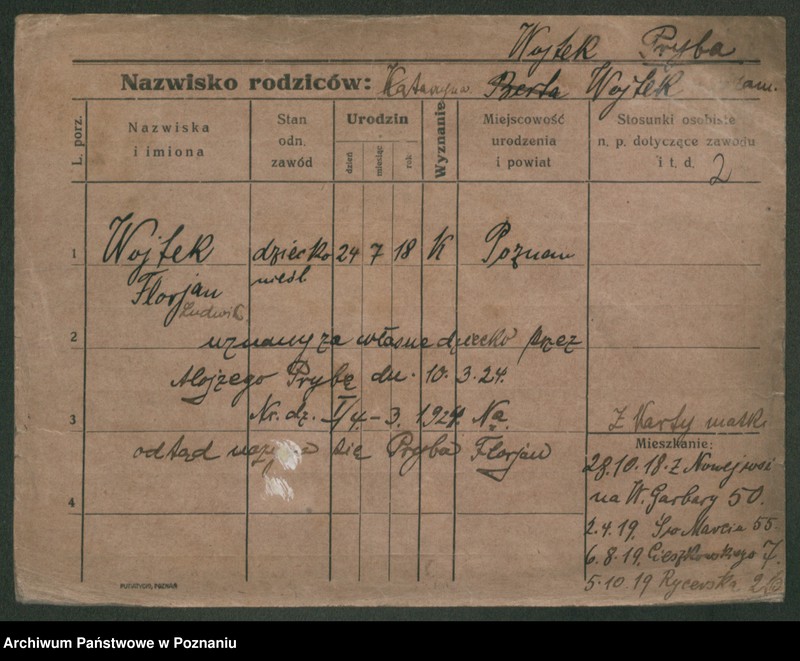 Wojtek Pryba
Nazwisko rodziców: Katarzyna Berta Wojtek
L. porz.
Nazwiska i imiona
Stan odn. zawód
Urodzin
dzień
miesiąc
rok
Wyznanie
Miejscowość urodzenia i powiat
Stosunki osobiste n. p. dotyczące zawodu i t. d. 2
1 Wojtek dziecko 24 7 18 K Poznań
Florjan nieśl
Ludwik
2 uznany za własne dziecko przez
Alojzego Prybę dn. 10.3.24.
3 Nr. dz. I/4 – 3. 1924 Na
odtąd nazywa się Pryba Florjan
4
Z Karty matki
Mieszkanie:
28.10.18. z Nowejwsi
na W. Garbary 50.
2.4.19. Św Marcin 55
6.8.19. Cieszkowskiego 7.
5.10.19 Rycerska
PUTIATYCKI, POZNAŃ
Archiwum Państwowe w Poznaniu